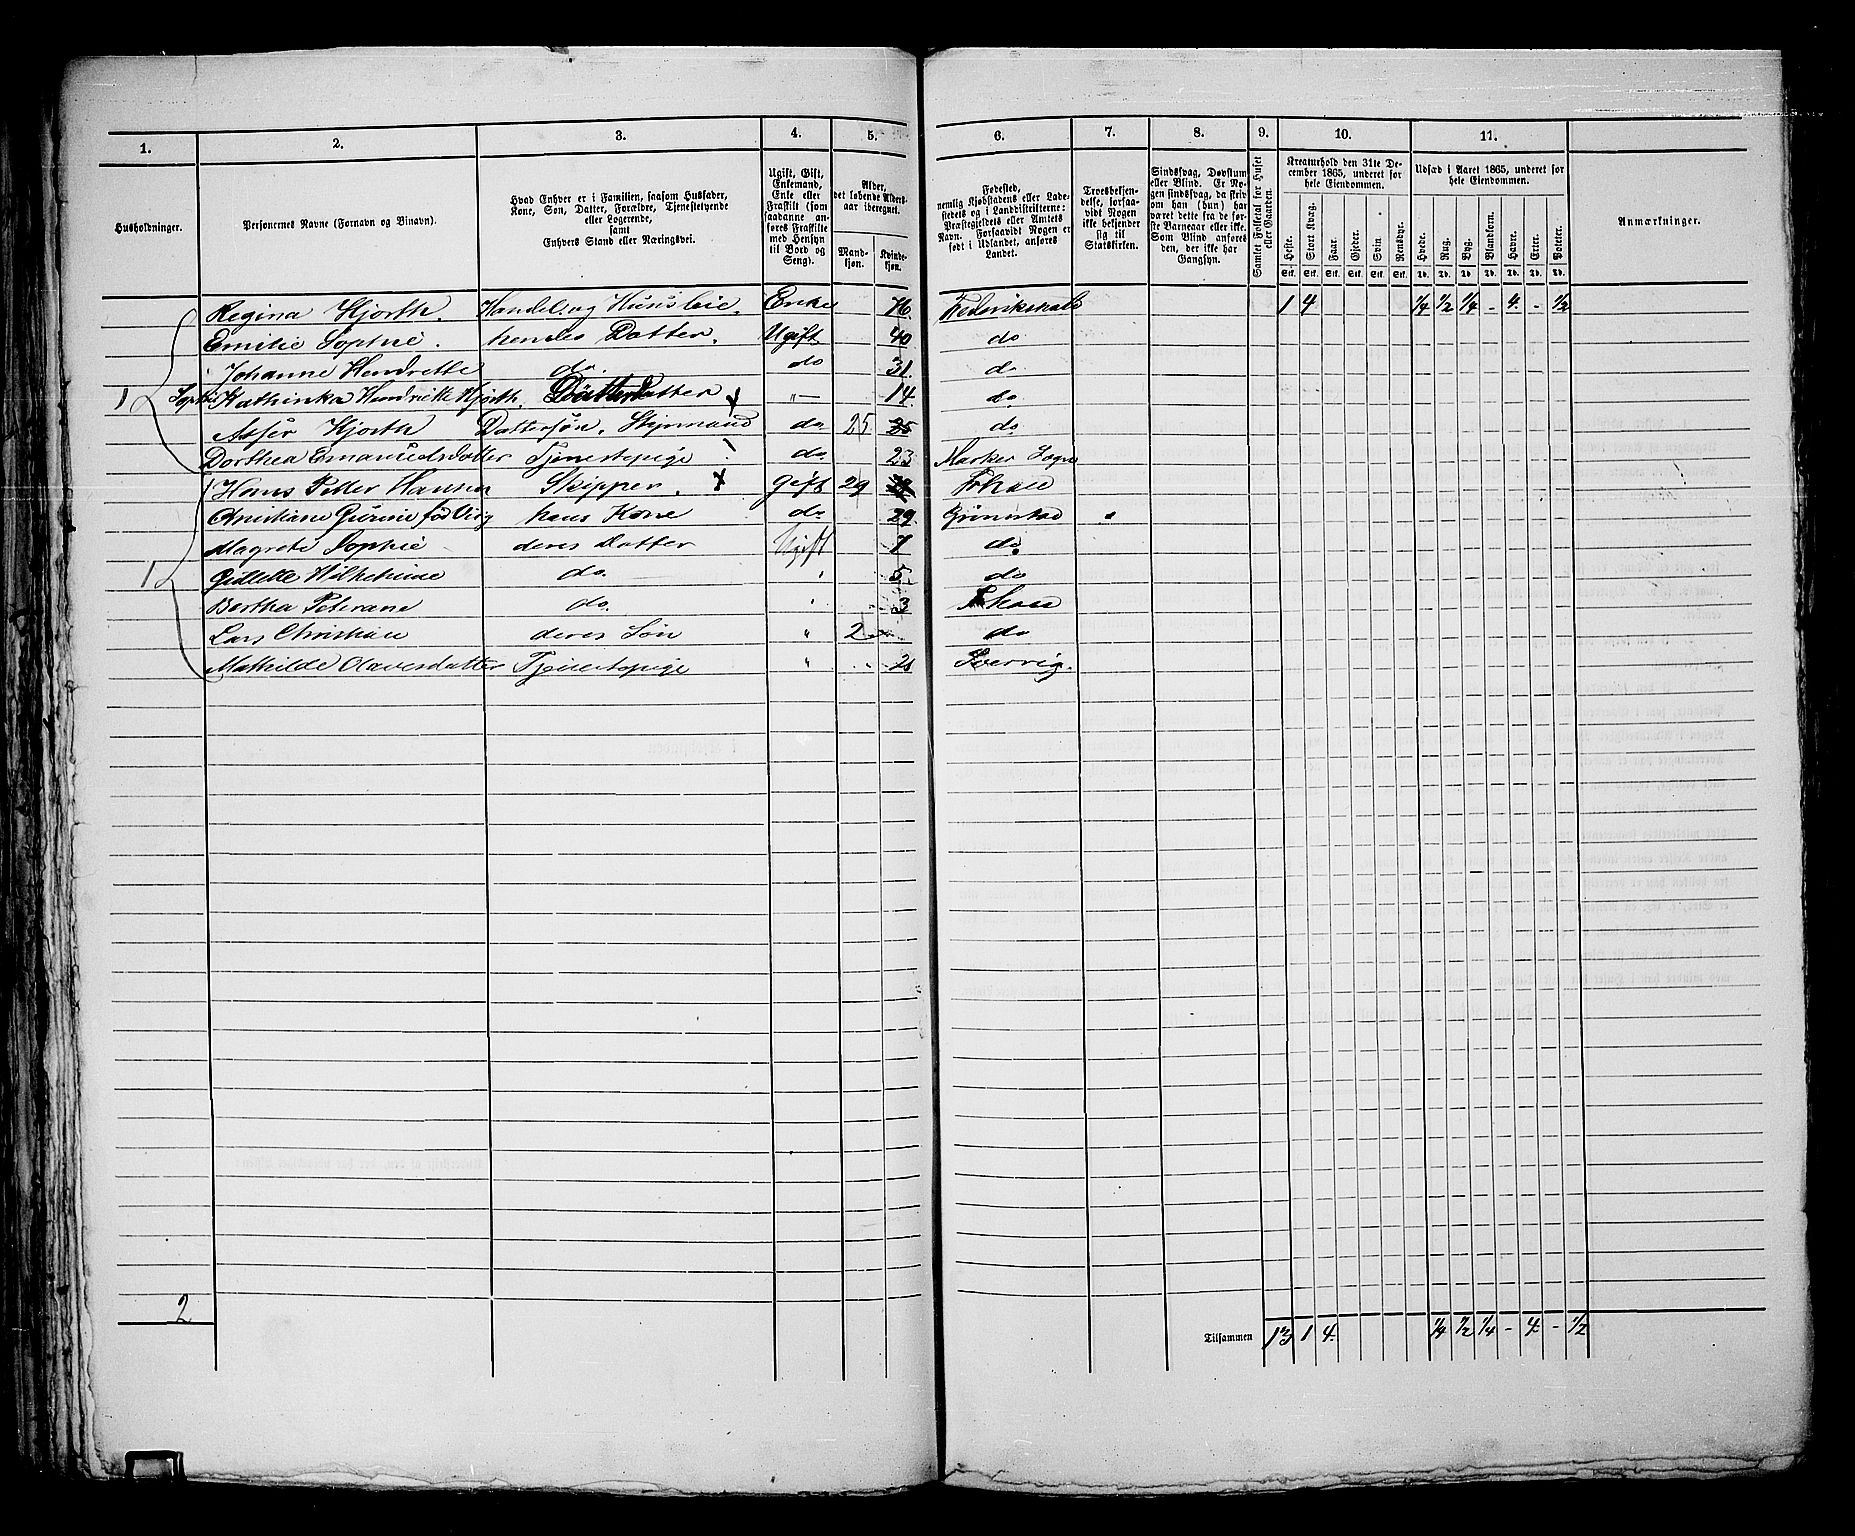 1. 2. 3. 4. 5. 6. 7. 8. 9. 10. 11.
Husholdninger.
Personernes Navne (Fornavn og Binavn).
Hvad Enhver er i Familien, saasom Husfader,
Kone, Søn, Datter, Forældre, Tjenestetyende
eller Logerende,
samt
Enhvers Stand eller Næringsvei.
Ugift, Gift,
Enkemand,
Enke eller
Fraskilt (som
saadanne an-
føres Fraskilte
med Hensyn
til Bord og
Seng).
Alder,
det løbende Alders-
aar iberegnet.
Mand-
kjøn.
Kvinde-
kjøn.
Fødested,
nemlig Kjøbstadens eller Lade-
stedets og i Landdistrikterne:
Præstegjeldets eller Amtets
Navn. Forsaavidt Nogen er
født i Udlandet, anføres
Landet.
Troesbekjen-
delse, forsaa-
vidt Nogen
ikke bekjender
sig til
Statskirken.
Sindssvag, Døvstum
eller Blind. Er No-
gen sindssvag, da skriv
om han (hun) har
været dette fra de før-
ste Barneaar eller ikke.
Som Blind anføres
den, der ikke har
Gangsyn.
Samlet Folketal for Huset
eller Gaarden.
Kreaturhold den 31te De-
cember 1865, underet for
hele Eiendommen.
Heste. Stort Kvæg. Faar. Gjeder. Svin. Rensdyr.
Stk. Stk. Stk. Stk. Stk. Stk.
Udsæd i Aaret 1865, underet for
hele Eiendommen.
Hvede. Rug. Byg. Blandkorn. Havre. Erter. Poteter.
Td. Td. Td. Td. Td. Td. Td.
Anmærkninger.
Regina Hjorth. Handel og Huusleie. Enke 76. Frederikshald 1 4 1/4 1/2 1/4 - 4. - 1/2
Emilie Sophie. hendes Datter. Ugift 40 do
Johanne Hendrette do. do 31. do
1 Sophie Kathinka Hendrikke Hjorth. Datterdatter "— 14. do
Asser Hjorth Dattersøn, Styrmand do 25 25 do
Dorthea Emanuelsdatter Tjenestepige do 23 Marker Sogn
Hans Petter Hansen Skipper. Gift 29 Frhald
Christiane Gurine født Vig hans Kone do 29. Grimstad
Magrete Sophie deres Datter Ugift 7 do
1 Wilhelmine do. " 5. do
Bertha Peterane do. " 3 Frhald
Lars Christian deres Søn " 2 do
Mathilde Olavesdatter Tjenestepige "
2
Tilsammen 13 1 4. 1/4 1/2 1/4 - 4 - 1/2